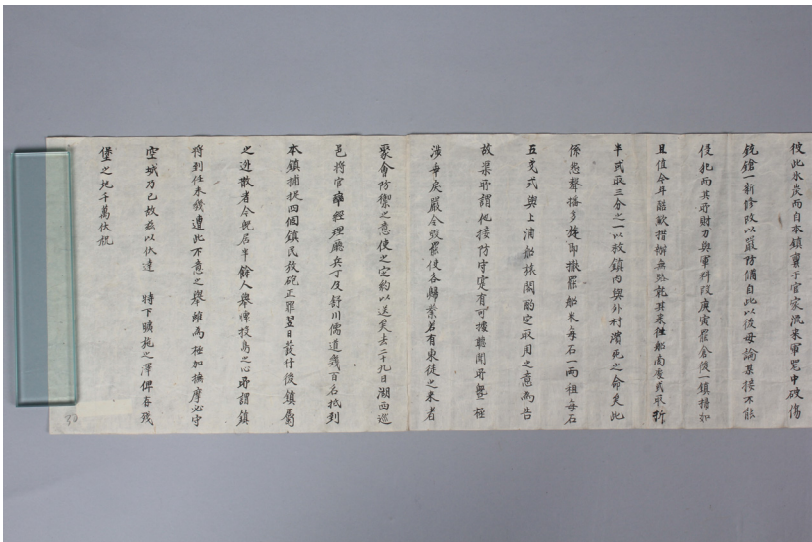 彼此氷炭而自本鎮稟于官家流來軍器中破傷
銃鎗一新修改以嚴防備自此以後毋論某接不能
侵犯而其所財力與軍料段庚寅罷倉後一鎮擧如
且值今年酷歉措辦無路乾其來往船商處或取折
半或取三分之一以救鎮內與外村濱死之命矣此
係怨聲播多施耶撤罷船米每石一兩租每石
五戔式與上浦船様關酌定取用之意爲告
故渠所謂他接防守寔有可據聽聞所曁極
涉乖戾嚴令毀罷使各歸業若有東徒之來者
聚會防禦之意使之定約以送矣去二十九日湖西巡
邑將官率經理廳兵丁及舒川儒道幾百名抵到
本鎮捕捉四個鎮民放砲正罪翌日發行後鎮屬
之逬散者今焉居半餘人擧懷投烏之心所謂鎮
將到任未幾遭此不意之擧雖爲極加撫摩必守
空城乃已故玆以伏達 特下曠施之澤俾存殘
堡之地千萬伏祝
30